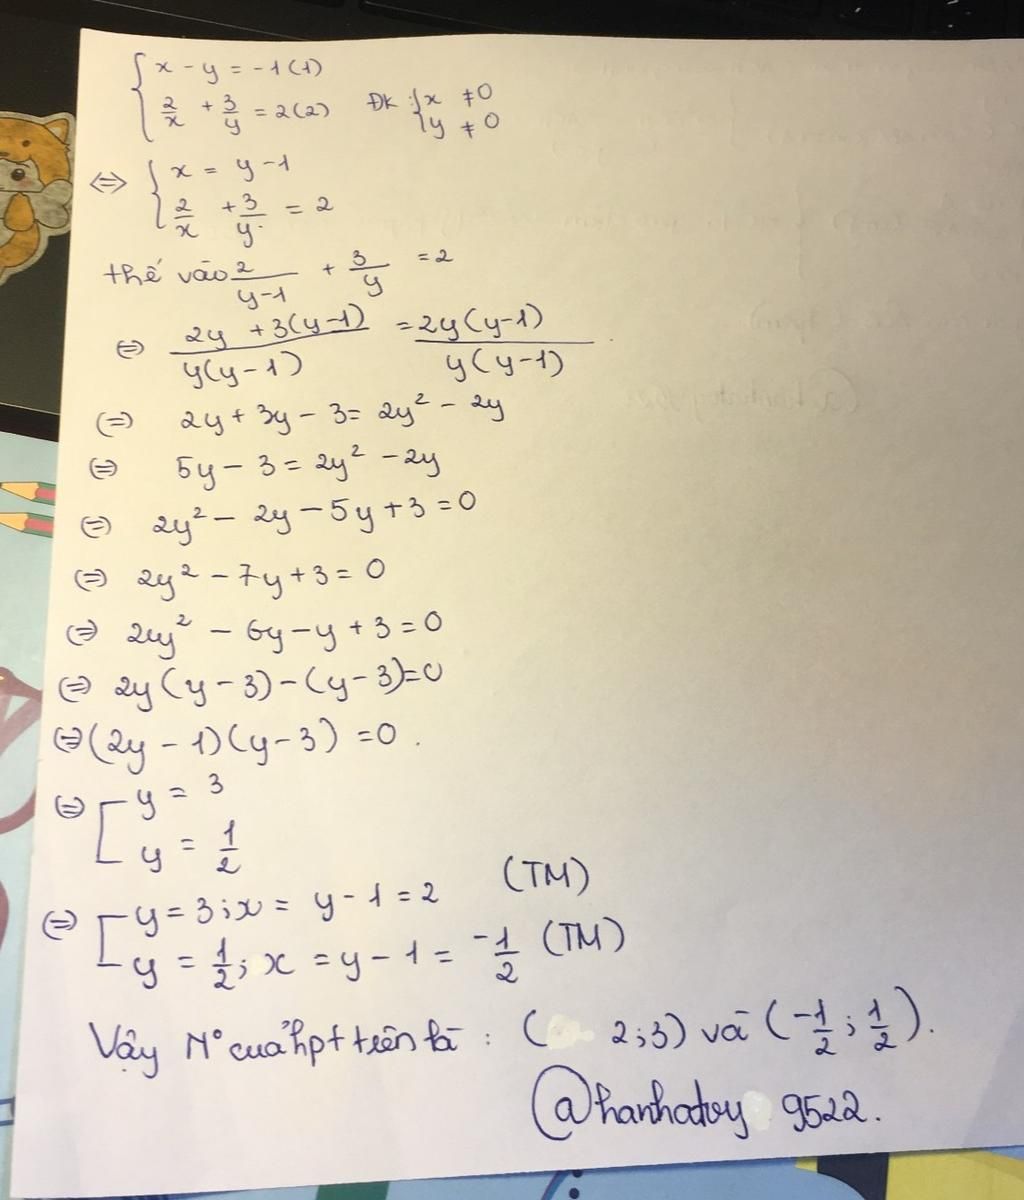 { x - y = -1 (1)
2/x + 3/y = 2 (2) ĐK : { x ≠ 0
y ≠ 0
⇔ { x = y - 1
2/x + 3/y = 2
thế vào 2/(y-1) + 3/y = 2
⇔ (2y + 3(y-1))/(y(y-1)) = (2y(y-1))/(y(y-1))
⇔ 2y + 3y - 3 = 2y² - 2y
⇔ 5y - 3 = 2y² - 2y
⇔ 2y² - 2y - 5y + 3 = 0
⇔ 2y² - 7y + 3 = 0
⇔ 2y² - 6y - y + 3 = 0
⇔ 2y(y - 3) - (y - 3) = 0
⇔ (2y - 1)(y - 3) = 0.
⇔ [ y = 3
y = 1/2
⇔ [ y = 3; x = y - 1 = 2 (TM)
y = 1/2; x = y - 1 = -1/2 (TM)
Vậy N° của hpt trên là : ( 2; 3) và (-1/2; 1/2).
9522.